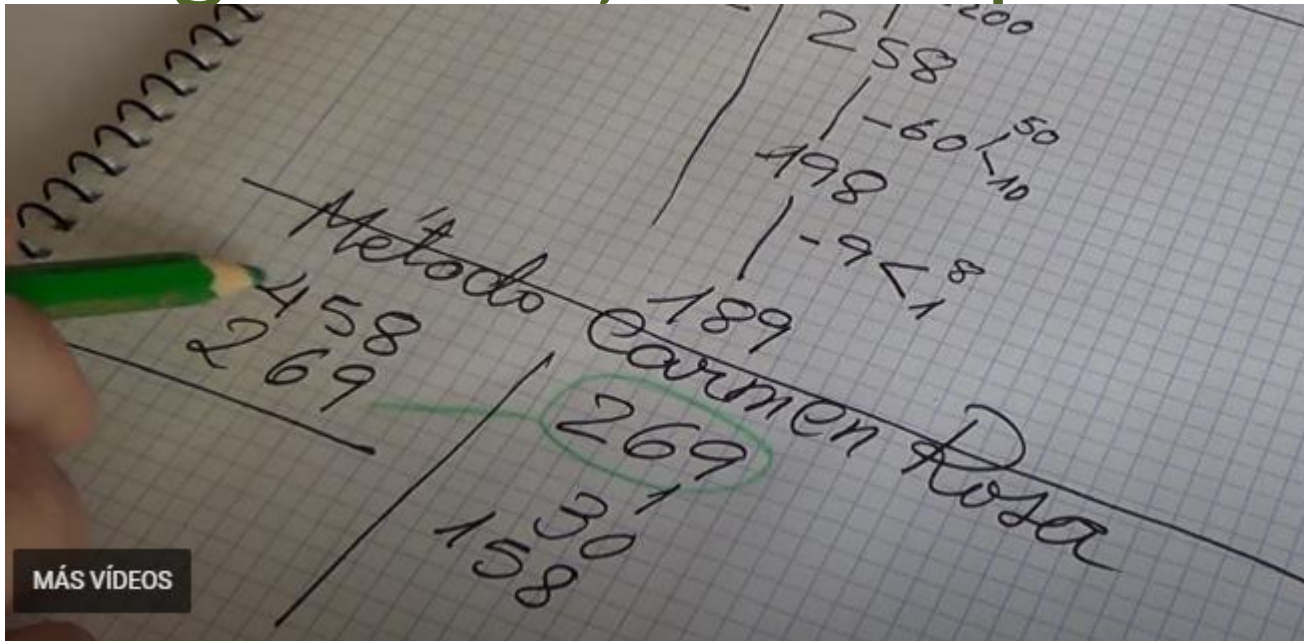 -200
258
-60 < 50
10
198
-9 < 8
1
189
Método Carmen Rosa
458
269
269
1
30
158
MÁS VÍDEOS